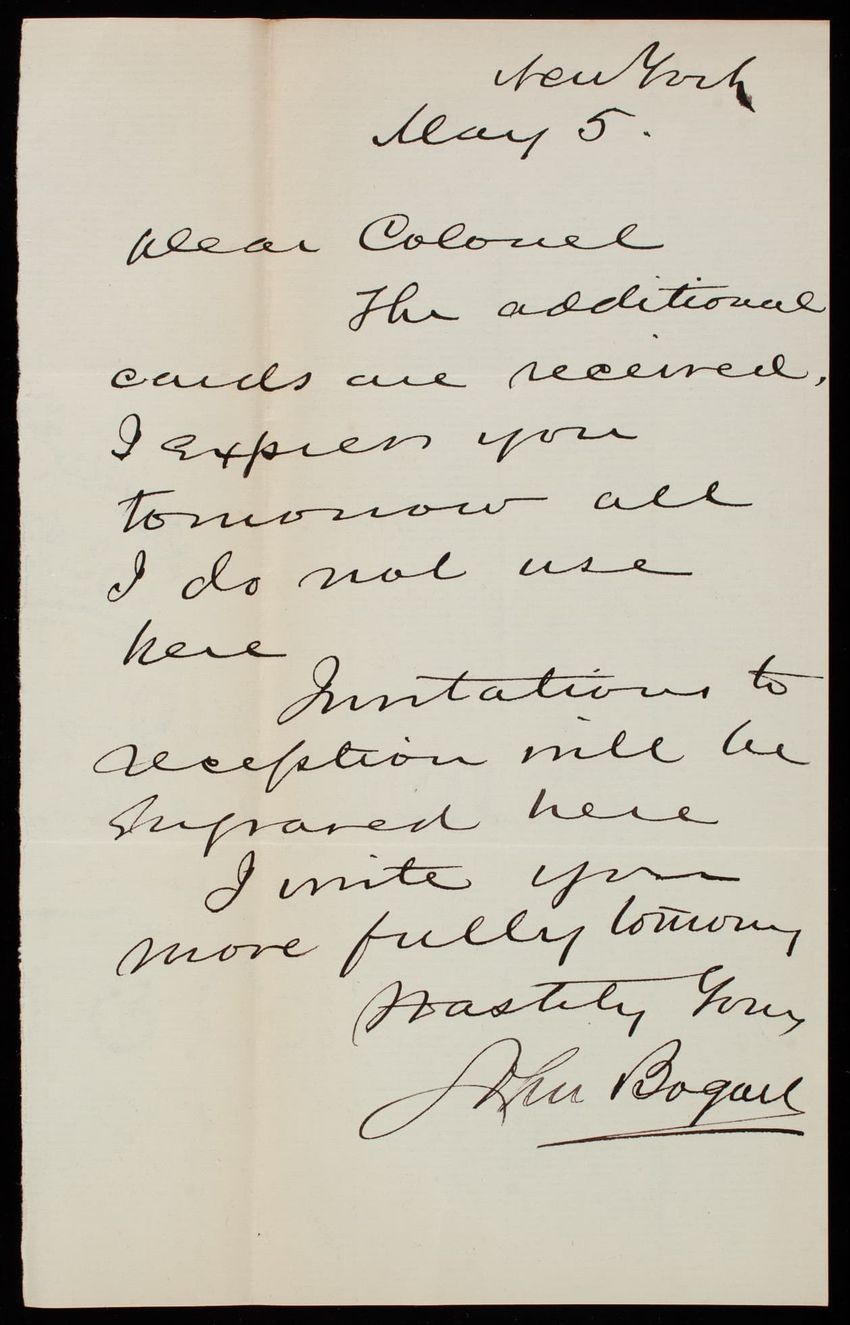 New York
May 5.
Dear Colonel
The additional
cards are received.
I Express you
tomorrow all
I do not use
here
Invitations to
reception will be
Engraved here
I write you
more fully tomorrow
Hastily Yours
John Bogart